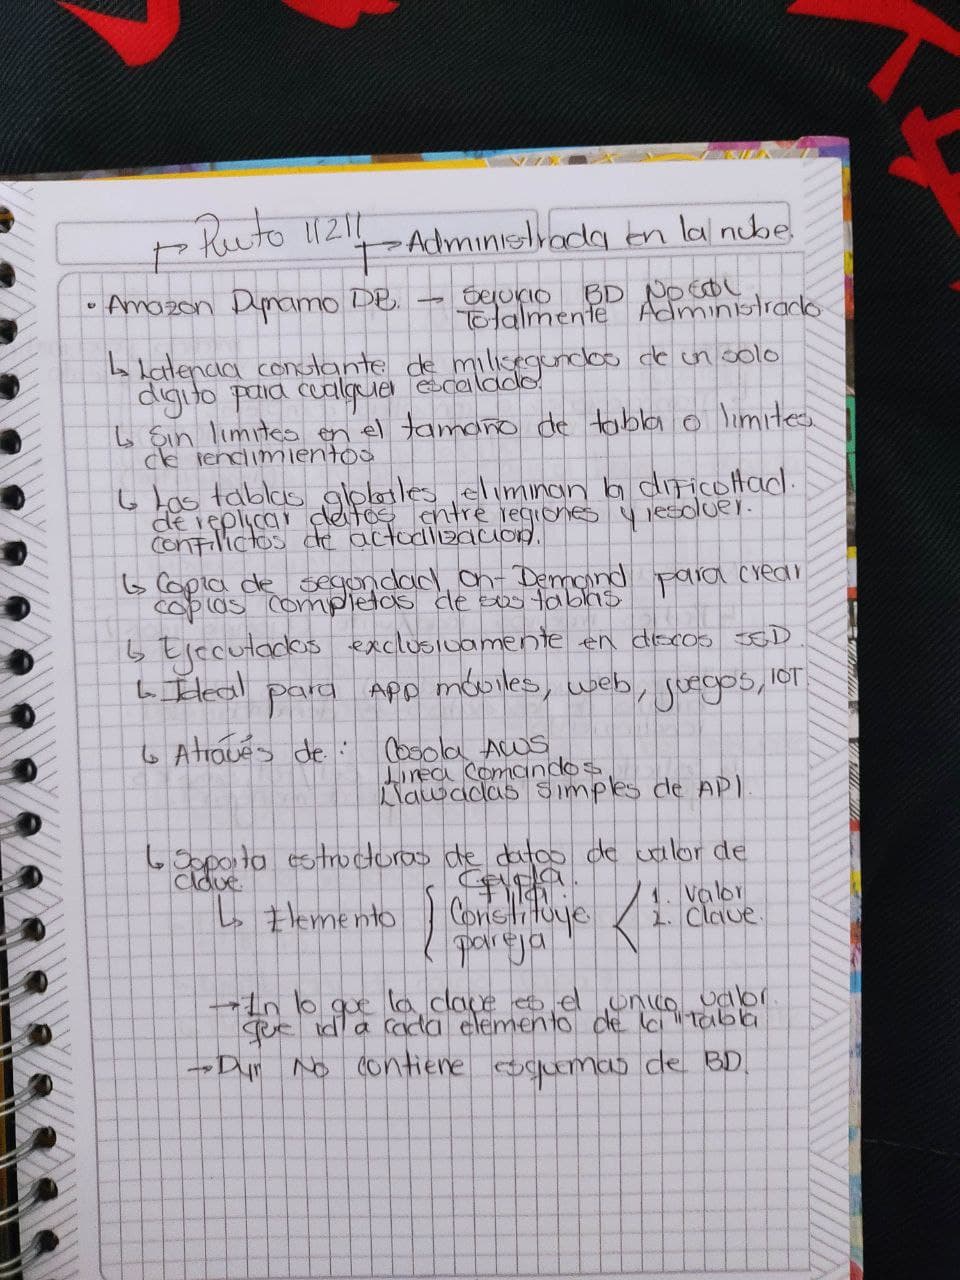 Ruto 11211 Administrada en la nube.
• Amazon Dynamo DB. → Servicio BD NoSQL
Totalmente Administrado
↳ Latencia constante de milisegundos de un solo
digito para cualquier escalado
↳ Sin limites en el tamaño de tabla o limites
de rendimientos
↳ Las tablas globales eliminan la dificultad.
de replicar datos entre regiones y resolver.
conflictos de actualizacion.
↳ Copia de seguridad On-Demand para crear
copias completas de sus tablas
↳ Ejecutados exclusivamente en discos SSD.
↳ Ideal para APP móviles, web, juegos, IOT
↳ Através de: Cosola AWS
Linea Comandos
Llamadas simples de API.
↳ Soporta estructuras de datos de valor de
clave
fila.
↳ Elemento { Constituye < 1. valor
pareja 2. clave.
→ En lo que la clave es el unico valor.
que id a cada elemento de la tabla
→ Dyn No contiene esquemas de BD.